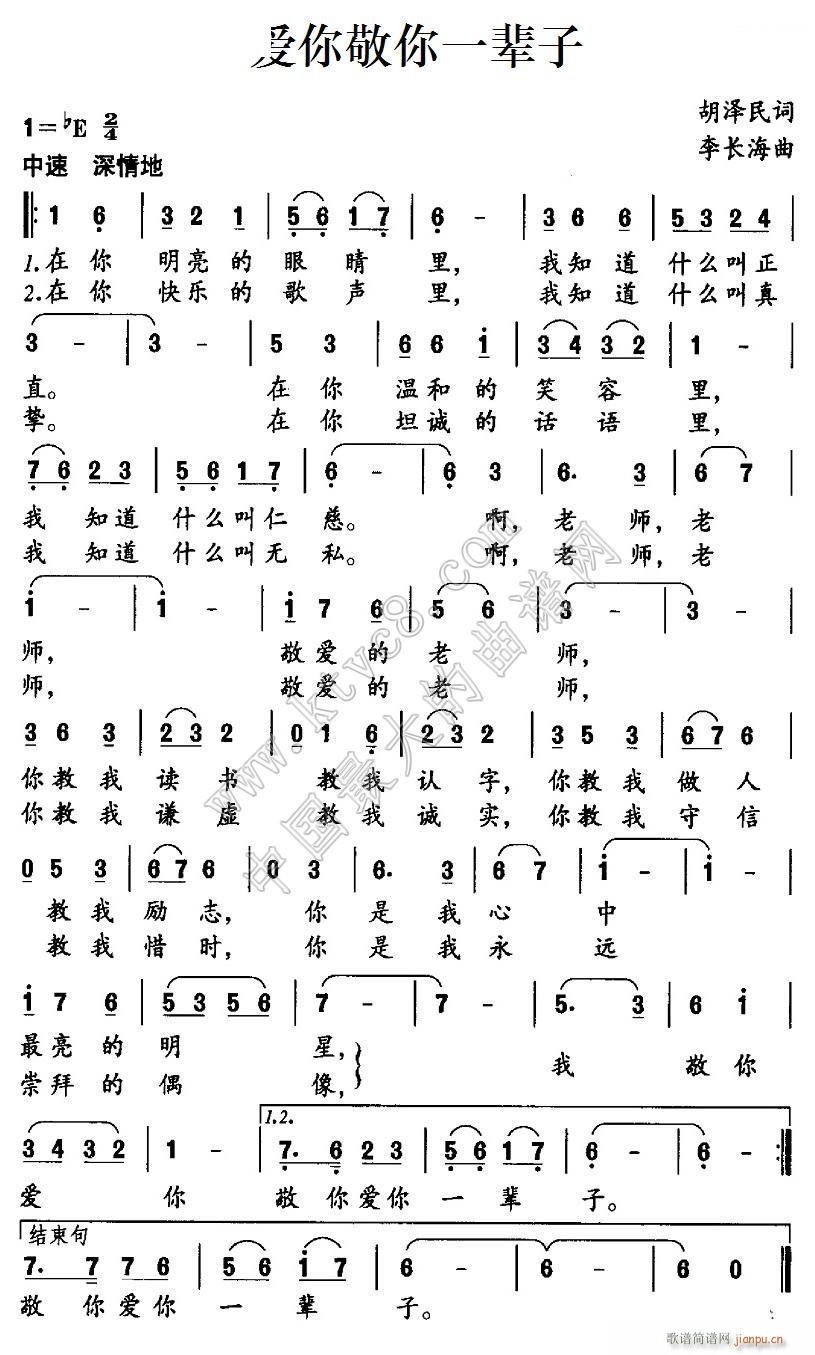 爱你敬你一辈子
胡泽民词
1=♭E 2/4
李长海曲
中速 深情地
1 6 | 3 2 1 | 5 6 1 7 | 6 - | 3 6 6 | 5 3 2 4 |
1.在你 明亮的眼睛里, 我知道什么叫正
2.在你 快乐的歌声里, 我知道什么叫真
3 - | 3 - | 5 3 | 6 6 i | 3 4 3 2 | 1 - |
直。 在你温和的笑容里,
挚。 在你坦诚的话语里,
7 6 2 3 | 5 6 1 7 | 6 - | 6 3 | 6. 3 | 6 7 |
我知道什么叫仁慈。 啊,老师,老
我知道什么叫无私。 啊,老师,老
i - | i - | i 7 6 | 5 6 | 3 - | 3 - |
师, 敬爱的老师,
师, 敬爱的老师,
3 6 3 | 2 3 2 | 0 1 6 | 2 3 2 | 3 5 3 | 6 7 6 |
你教我读书 教我认字,你教我做人
你教我谦虚 教我诚实,你教我守信
0 5 3 | 6 7 6 | 0 3 | 6. 3 | 6 7 | i - | i - |
教我励志, 你是我心中
教我惜时, 你是我永远
i 7 6 | 5 3 5 6 | 7 - | 7 - | 5. 3 | 6 i |
最亮的明星,
我敬你
崇拜的偶像,
1.2.
3 4 3 2 | 1 - | 7. 6 2 3 | 5 6 1 7 | 6 - | 6 - :|
爱你 敬你爱你一辈子。
结束句
7. 7 7 6 | 5 6 i 7 | 6 - | 6 - | 6 0 |
敬你爱你一辈子。
www.ktyc8.com
中国最大的曲谱网
歌谱简谱网 jianpu.cn